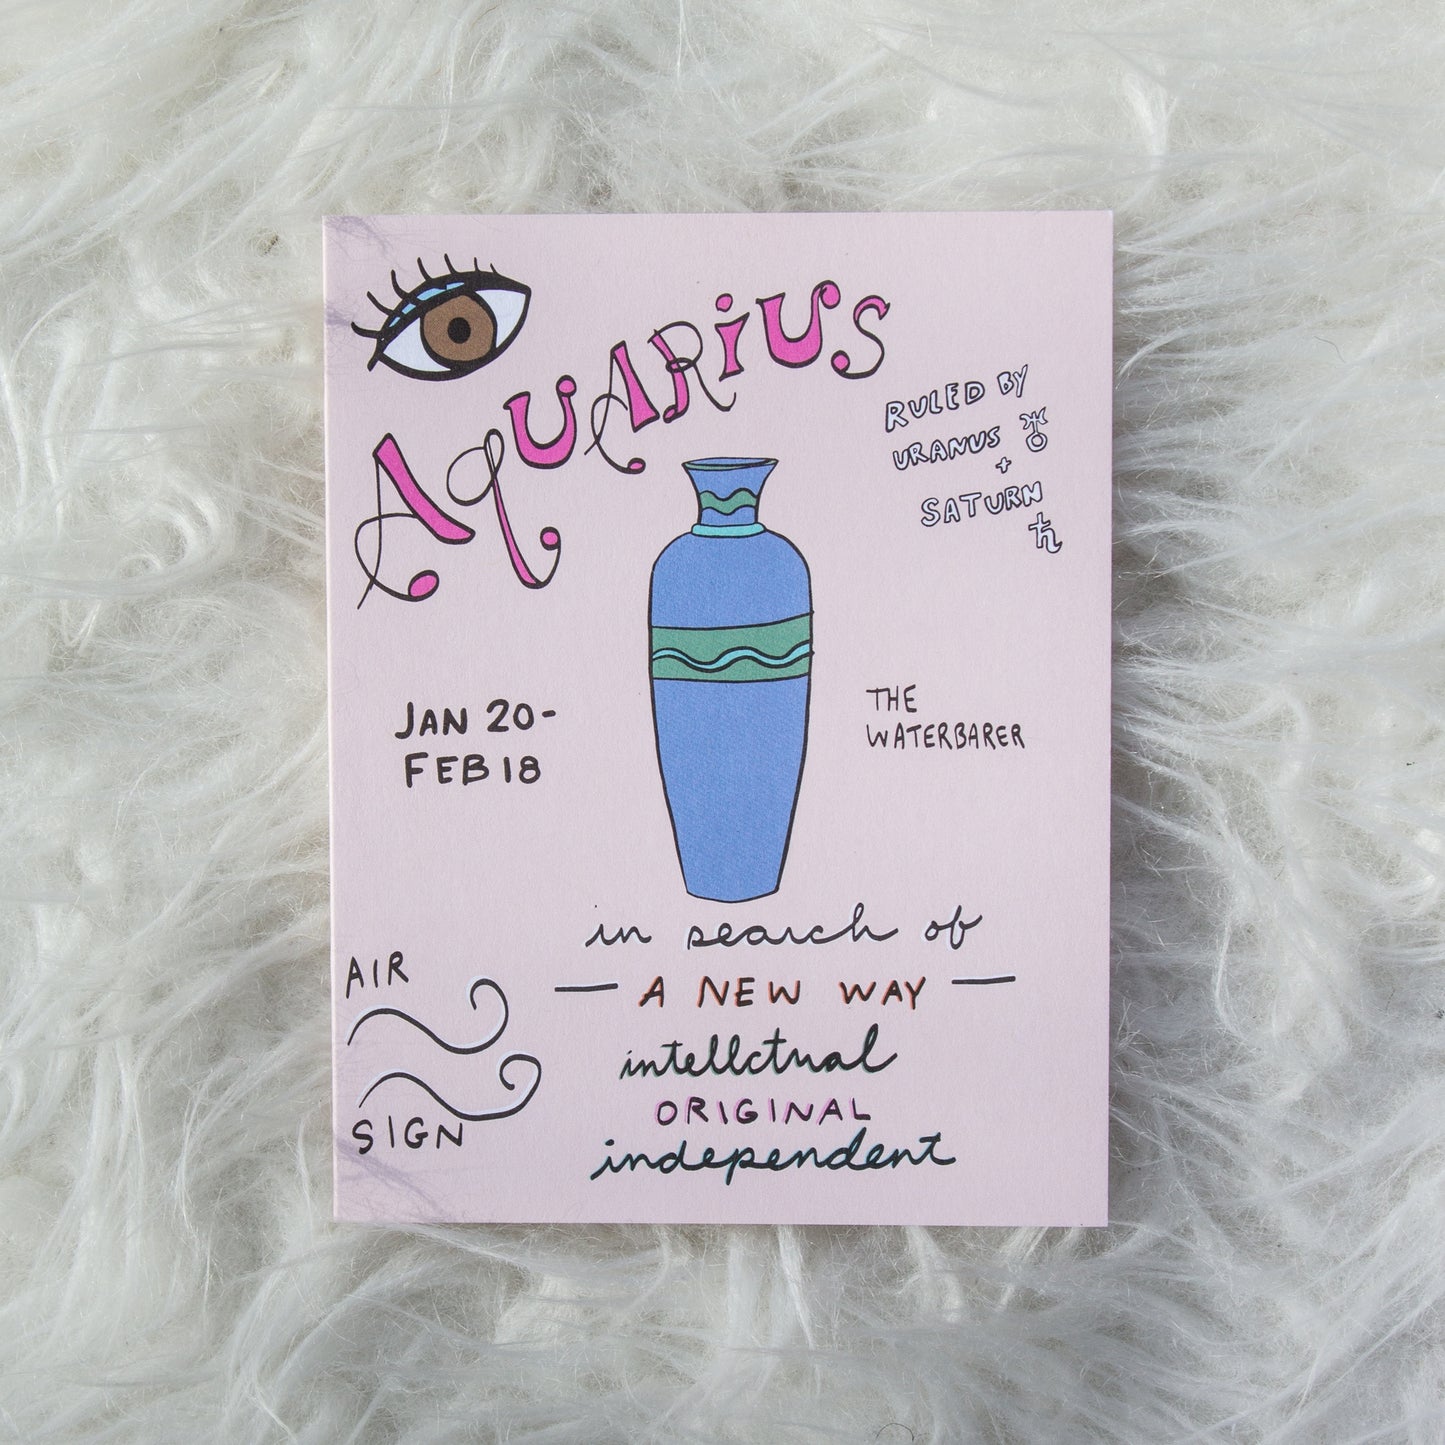 AQUARIUS
RULED BY
URANUS ♅
+
SATURN
♄
JAN 20-
FEB 18
THE
WATERBARER
in search of
— A NEW WAY —
intellctual
ORIGINAL
independent
AIR
SIGN